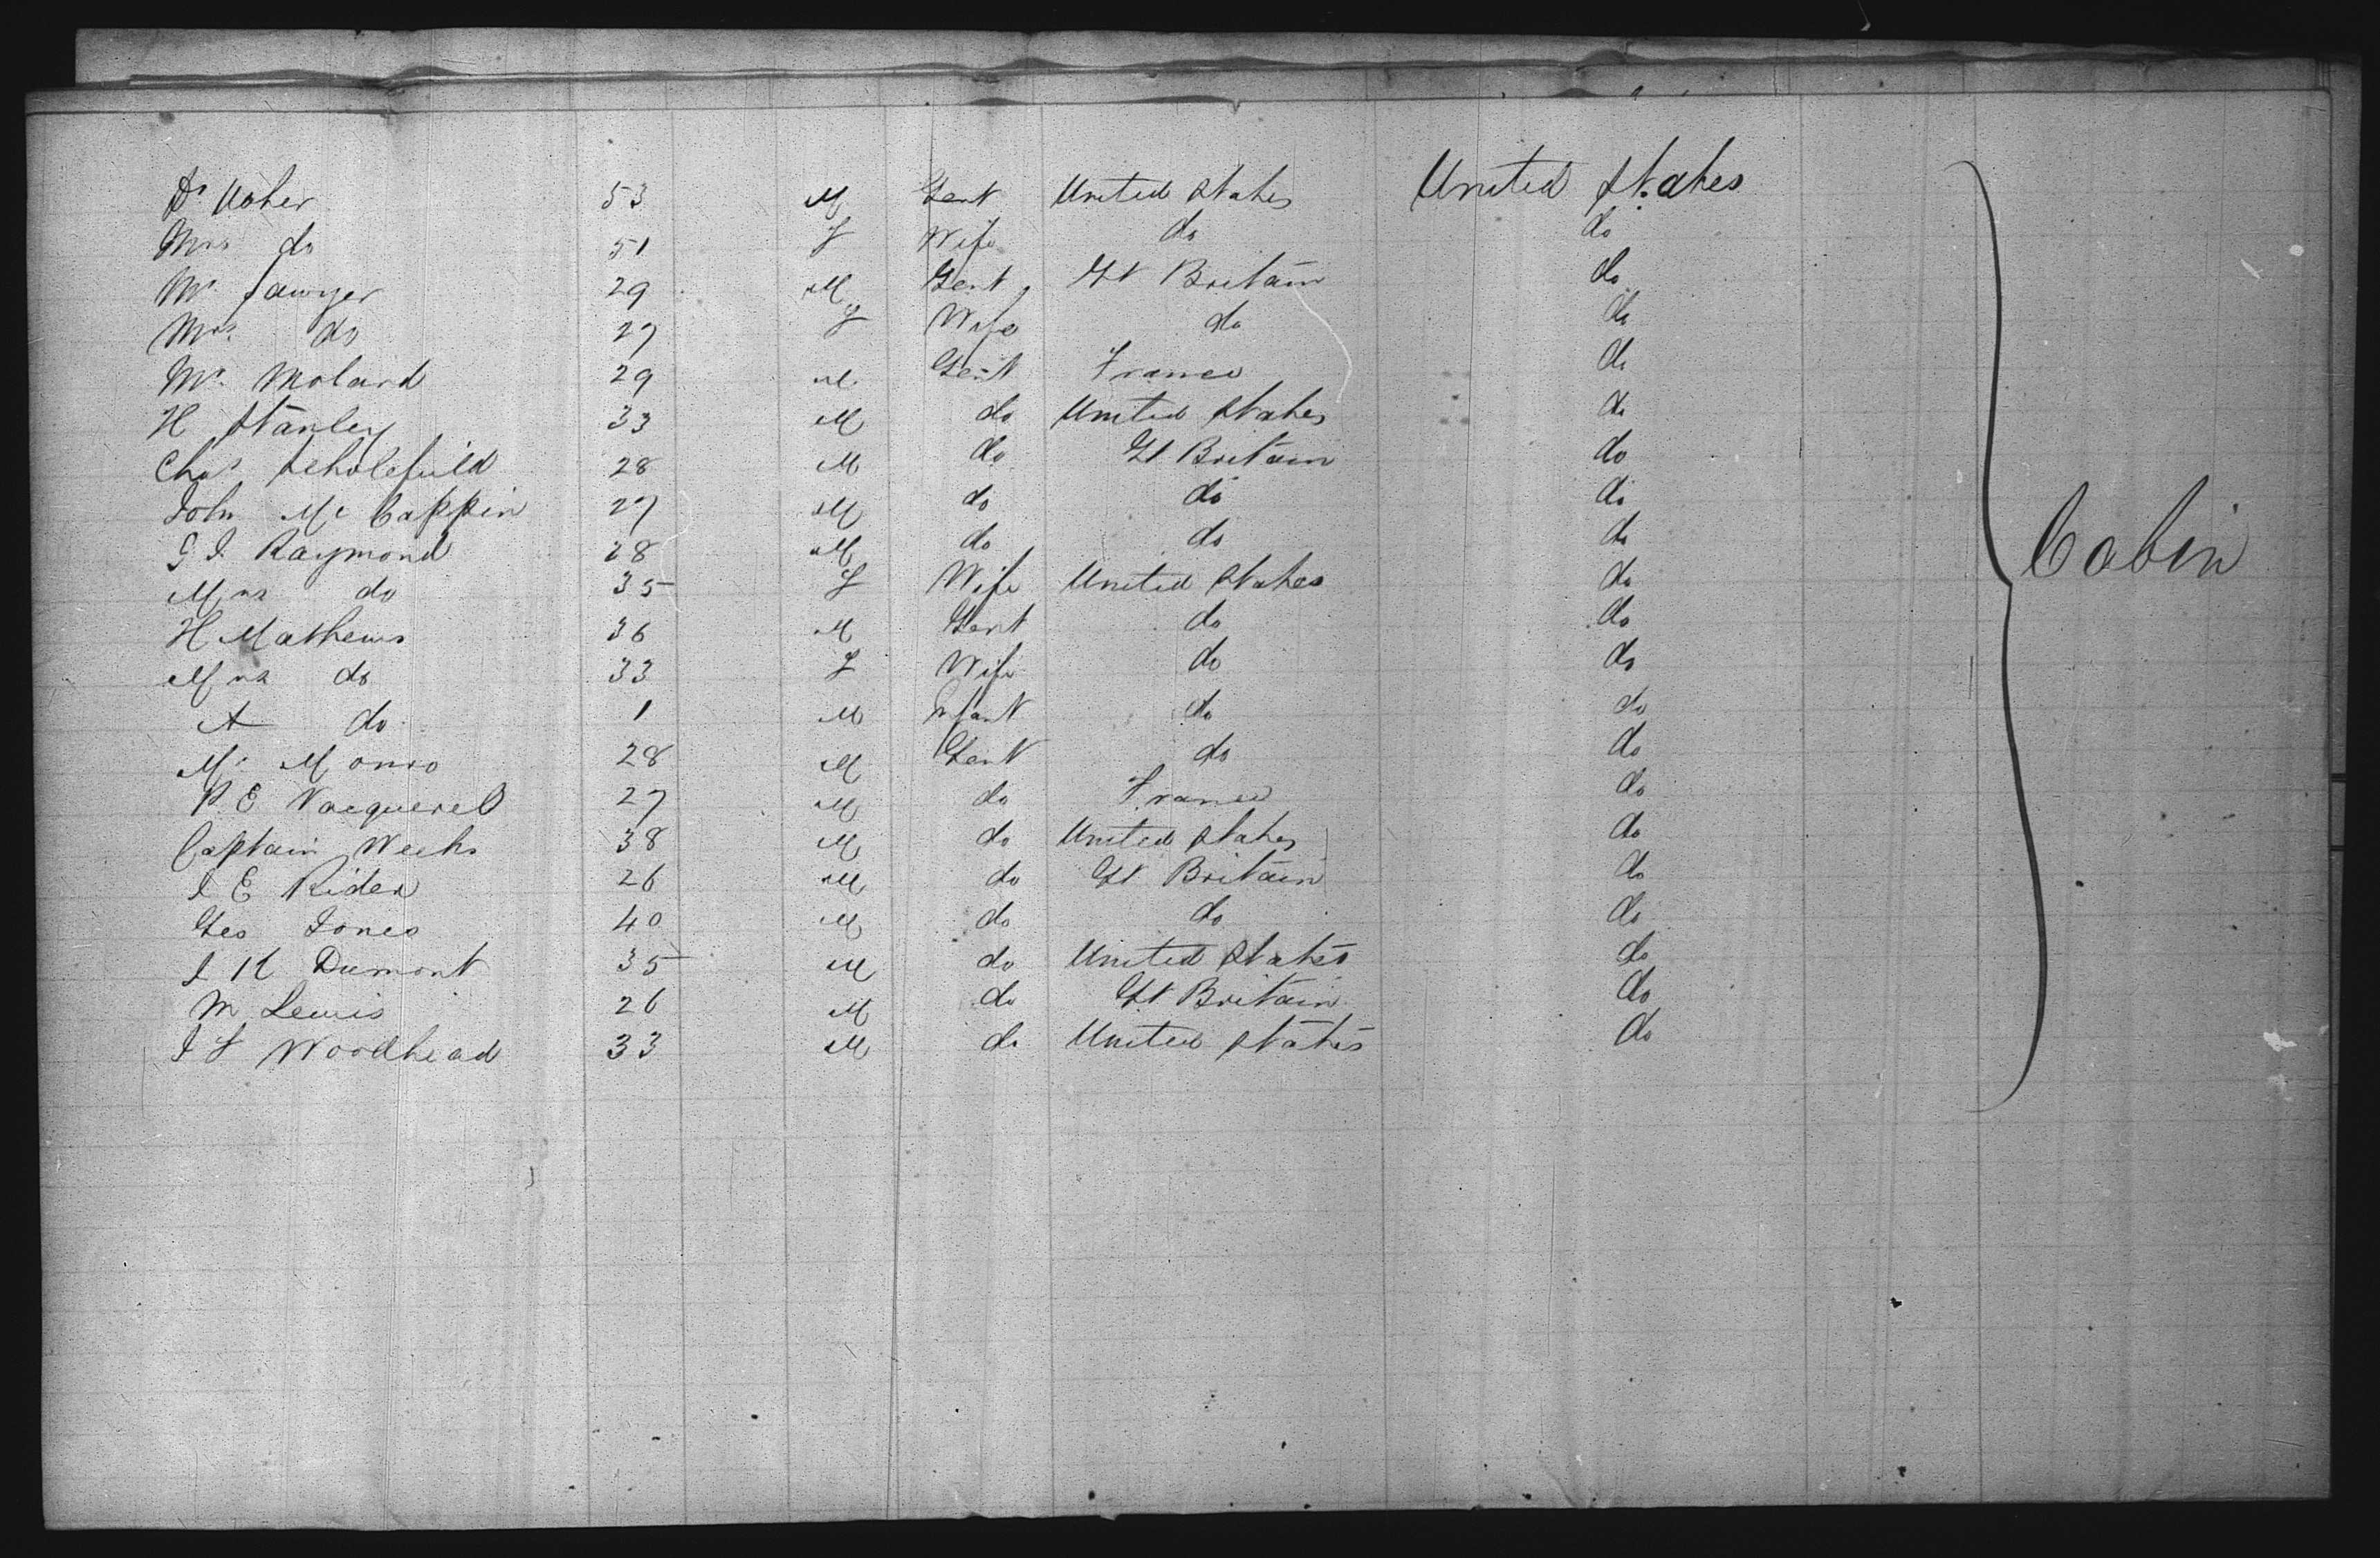 Dr Usher 53 M Gent United States United States
Mrs do 51 F Wife do do
Mr. Sawyer 29 M Gent Gt Britain do
Mrs. do 27 F Wife do do
Mr. Molard 29 M Gent France do
H Stanley 33 M do United States do
Chas Scholefield 28 M do Gt Britain do
John Mc Cappin 27 M do do do
G I Raymond 28 M do do do
Mrs do 35 F Wife United States do
H Mathews 36 M Gent do do
Mrs do 33 F Wife do do
A do 1 M Infant do do
Mr. Monro 28 M Gent do do
P. E Vacquerel 27 M do France do
Captain Weeks 38 M do United States do
I E Rider 26 M do Gt Britain do
Geo Jones 40 M do do do
I H Dumont 35 M do United States do
M Lewis 26 M do Gt Britain do
I F Woodhead 33 M do United States do
Cabin